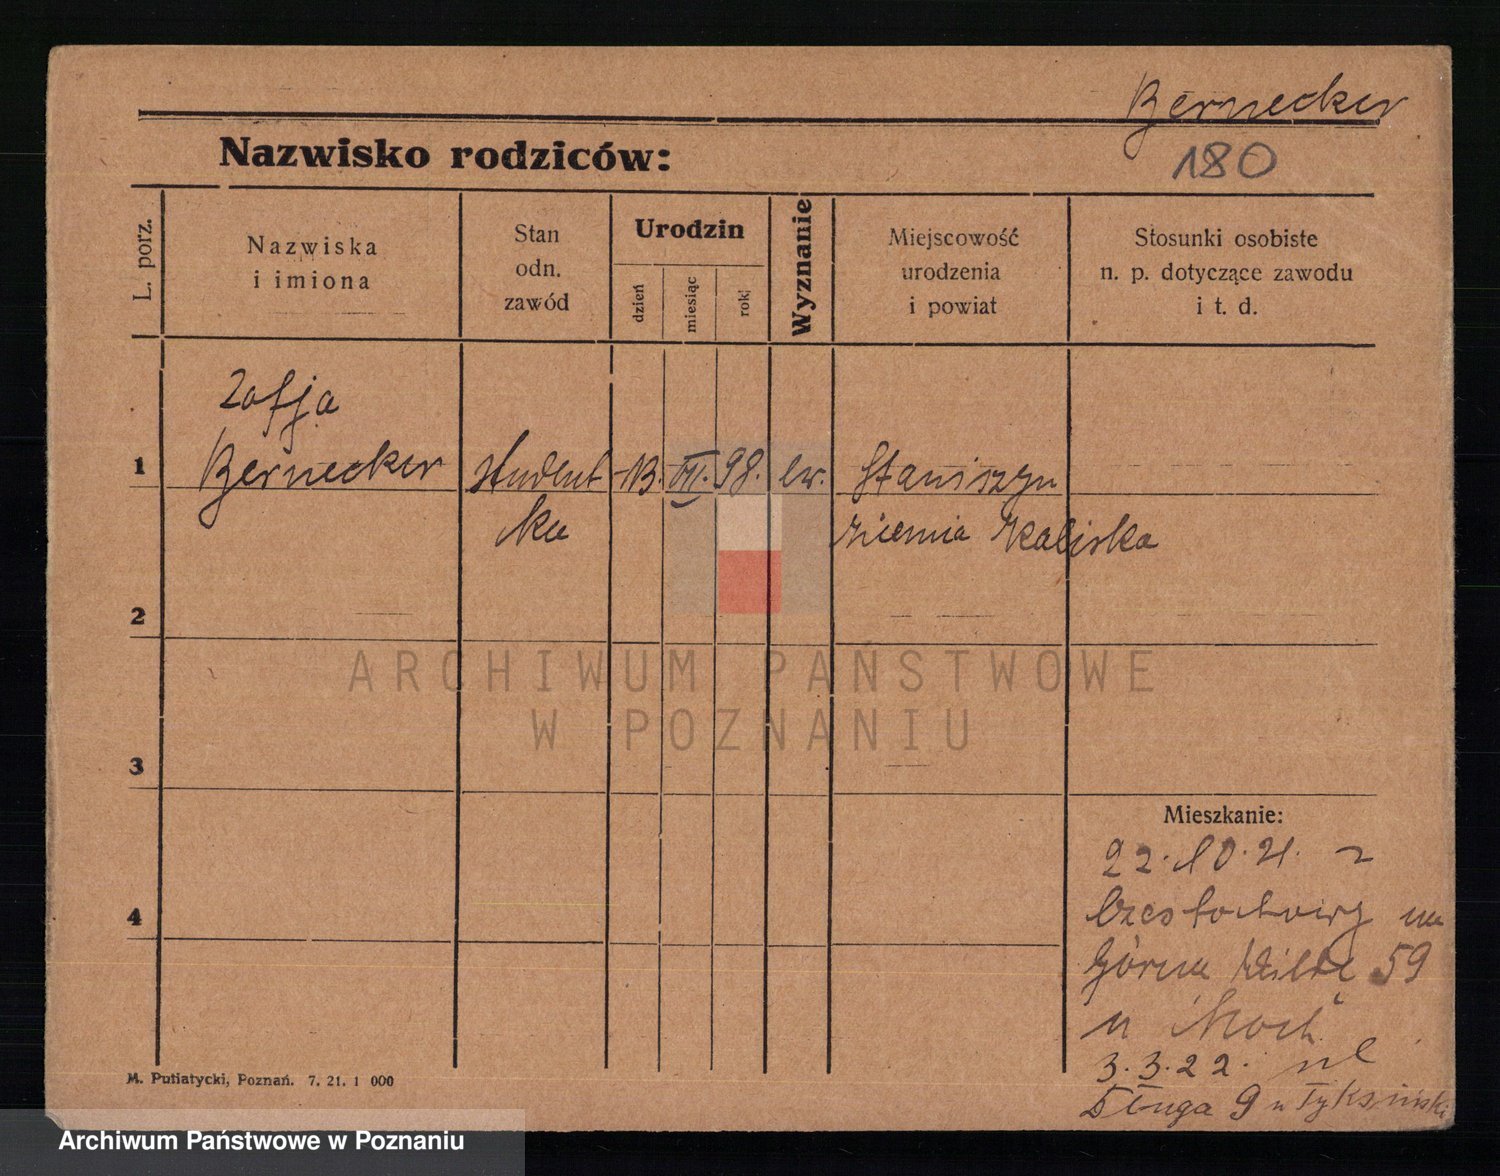 Bernecker
180
Nazwisko rodziców:
L. porz.
Nazwiska
i imiona
Stan
odn.
zawód
Urodzin
dzień
miesiąc
rok
Wyznanie
Miejscowość
urodzenia
i powiat
Stosunki osobiste
n. p. dotyczące zawodu
i t. d.
Zofja
1 Bernecker student 13. VII. 98. ew. Staniszyn
ka ziemia Kaliska
2
3
4
ARCHIWUM PAŃSTWOWE
W POZNANIU
Mieszkanie:
22.10.21. z
Czestochowy na
Górna Wilde 59
u Koch
3.3.22. ul
Długa 9 u Tyksiński
M. Putiatycki, Poznań. 7. 21. 1 000
Archiwum Państwowe w Poznaniu